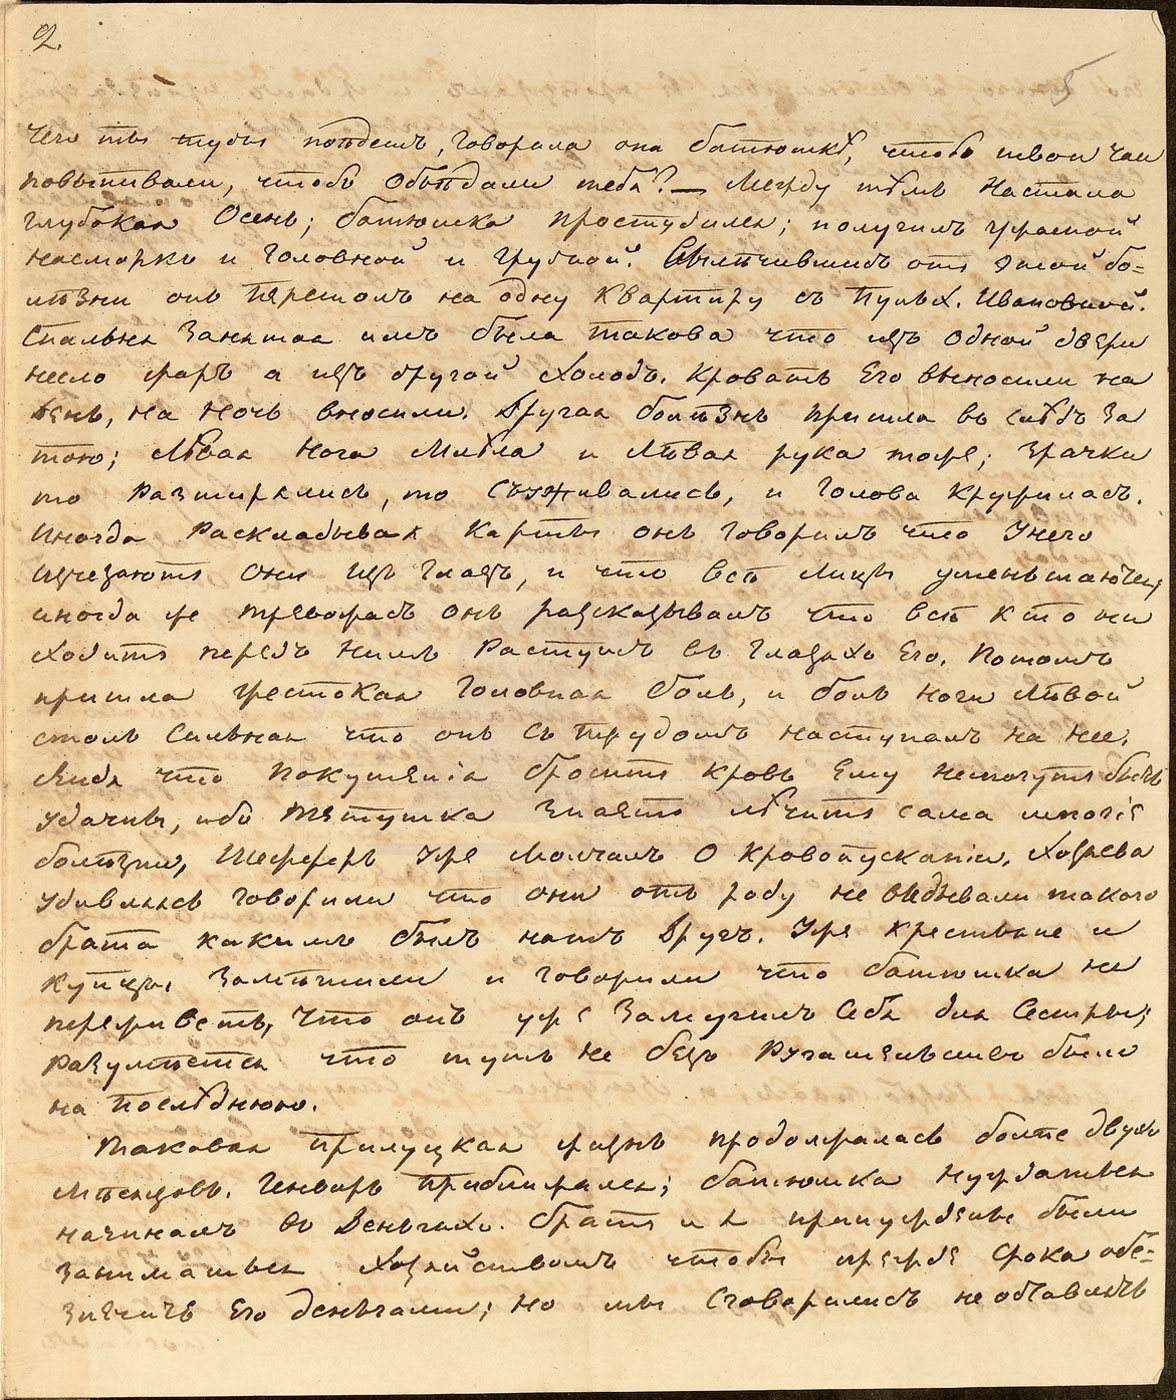 2.
5
чего ты туды поѣдешь, говорила она батюшкѣ, чтобъ твои чаи
повыпивали, чтобъ объѣдали тебя? — Между тѣмъ настала
глубокая Осень; батюшка простудился; получилъ ужасной
насморкъ и головной и грудной. Вылѣчившись отъ этой бо=
лѣзни онъ перешолъ на одну квартиру съ Пульх. Ивановной.
Спальня занятая имъ была такова что изъ одной двери
несло жаръ а изъ другой холодъ. Кровать Его выносили на
день, на ночь вносили. Другая болѣзнь пришла въ слѣдъ за
тою; Лѣвая нога млѣла и Лѣвая рука тоже; зрачки
то разширялись, то съуживались, и голова кружилась.
Иногда раскладывая карты онъ говорилъ что у него
изчезаютъ они изъ глазъ, и что всѣ лицы уменьшаются,
иногда же тревожась онъ разсказывалъ что всѣ кто ни
ходитъ передъ нимъ растутъ въ глазахъ Его. Потомъ
пришла жестокая головная боль, и боль ноги лѣвой
столь сильная что онъ съ трудомъ наступалъ на нее.
Видя что покушенія бросить кровь Ему немогутъ быть
удачны, ибо тетушка знаетъ лѣчить сама многіе
болѣзни, Шефферъ уже молчалъ о кровопусканіи. Хозяева
удивляясь говорили что они отъ роду не видывали такого
брата какимъ былъ нашъ другъ. Уже крестьяне и
купцы замѣтили и говорили что батюшка не
переживетъ, что онъ уже замучилъ себя для сестры;
разумѣется что тутъ не безъ ругательствъ было
на послѣднюю.
Таковая Прилуцкая жизнь продолжалась болѣе двухъ
мѣсяцовъ. Генварь приближался; батюшка нуждаться
начиналъ въ деньгахъ. Братъ и я принуждены были
заниматься хозяйствомъ чтобы прежде срока обе=
зпечить Его деньгами; но мы сговорились не оставлять